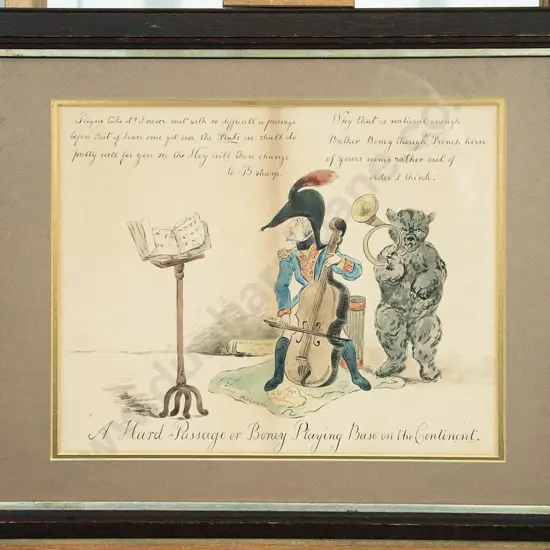 Plague take it! I never met with so difficult a passage
before But if I can once get over the Flats we shall do
pretty well for you see the Key will then change
to B sharp.
Why that is natural enough
Brother Boney though French horn
of yours seems rather out of
order I think.
A Hard Passage or Boney Playing Base on the Continent.